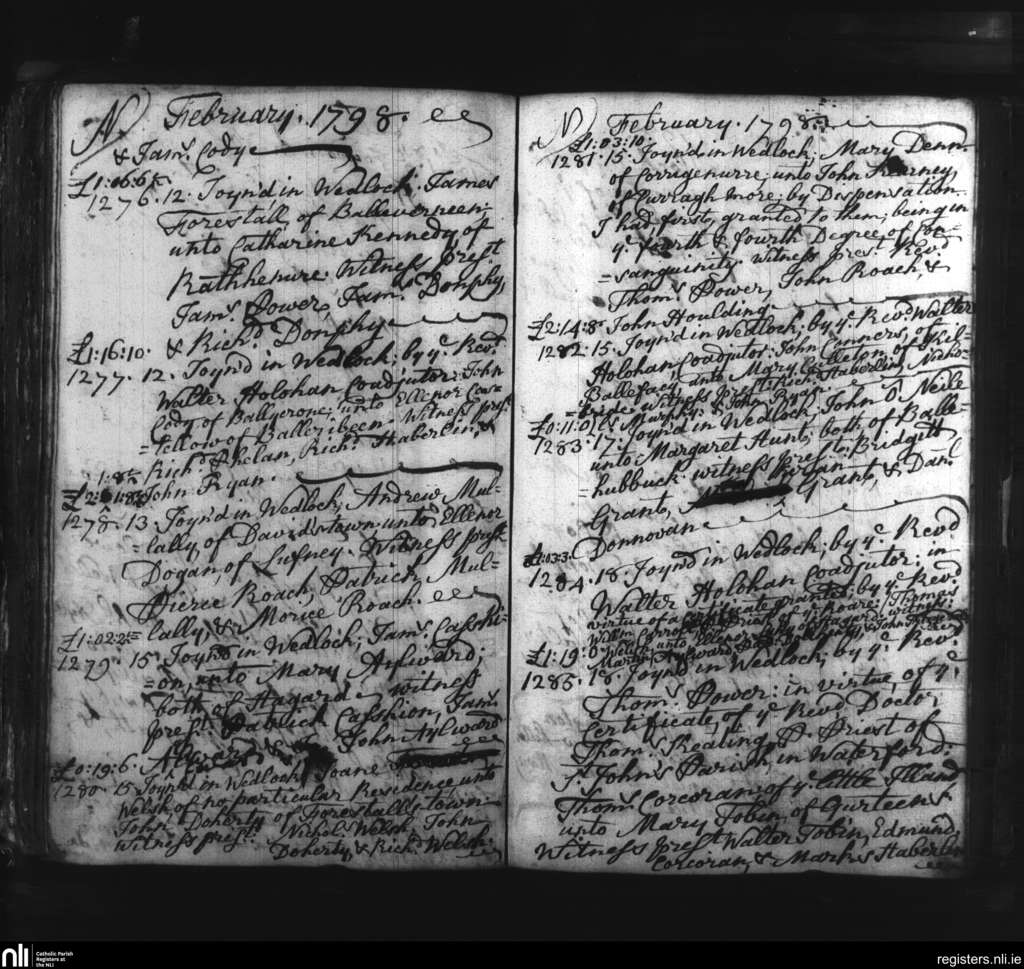 N February. 1798.
& Jams. Cody
£1:06:6½
1276. 12. Joyn'd in Wedlock; James
Forestall, of Balleverneen:
unto Catharine Kennedy of
Rathhenure: Witness prest
Jams. Power, Jams. Donphy,
& Richd. Donphy
£1:16:10.
1277. 12. Joyn'd in Wedlock, by ye. Revd.
Walter Holohan Coadjutor: John
Cody of Ballycrone; unto Ellenor
=fellow of Ballezibeen. Witness prst.
Richd. Phelan, Richd. Haberlin, &
John Ryan.
1278. 13. Joyn'd in Wedlock; Andrew Mul=
=lally, of Davidstown unto Ellenor
Dogan, of Lufney. Witness prst.
Pierce Roach, Patrick Mul=
=lally, & Morice Roach.
£1:02:2½
1279. 15. Joyn'd in Wedlock; Jams. Casshi=
=on, unto Mary Aylward;
both of Hagard. witness
prest. Patrick Casshion, Jams.
Aylward, & John Aylward
£0:19:6.
1280. 15 Joyn'd in Wedlock, Joane
Welsh of no particular Residence, unto
John Doherty of Forestallstown.
Witness prst. Nichols. Welsh, John
Doherty, & Richd. Welsh.
N February. 1798.
£1:03:10.
1281. 15. Joyn'd in Wedlock; Mary Denn
of Corragenurre; unto John Kearney
of Curragh more; by Dispensation
I had, first, granted to them; being in
ye. fourth & fourth Degree of Con=
=sanguinity. witness prest. Revd
Thoms. Power, John Roach, &
John Houlding
£2:14:8.
1282. 15. Joyn'd in Wedlock; by ye. Revd. Walter
Holohan, Coadjutor: John Conners, of
Ballefacy, unto Mary of Kil=
=bride. witness prest. Richd. Haberlin, Nicho=
=ls. Murphy, & John Ryan.
£0:11:0½
1283. 17. Joyn'd in Wedlock; John O Neile
unto Margaret Hunt; both of Balle=
=hubbuck. witness prest. Bridgitt
Grant, Grant, & Danl.
Donnovan
£1:03:3.
1284. 18 Joyn'd in Wedlock; by ye. Revd
Walter Holohan Coadjutor: in
virtue of a Certificate granted; by ye. Revd.
Willm. Carroll Priest of ye. Roare: Thomas
Welsh unto Ellenor of Hagard. witness.
Martin Aylward, & John
£1:19:0
1285. 18. Joyn'd in Wedlock; by ye. Revd
Thoms. Power: in virtue, of ye.
Certificate, of ye. Revd Doctr.
Thoms. Keating, P. Priest of
St. John's Parish, in Waterford:
Thoms. Corcoran, of ye. little Illand
unto Mary Tobin, of Gurteens.
Witness prest. Walter Tobin, Edmund
Corcoran, & Marks. Haberlin
nli Catholic Parish
Registers at
the NLI
registers.nli.ie